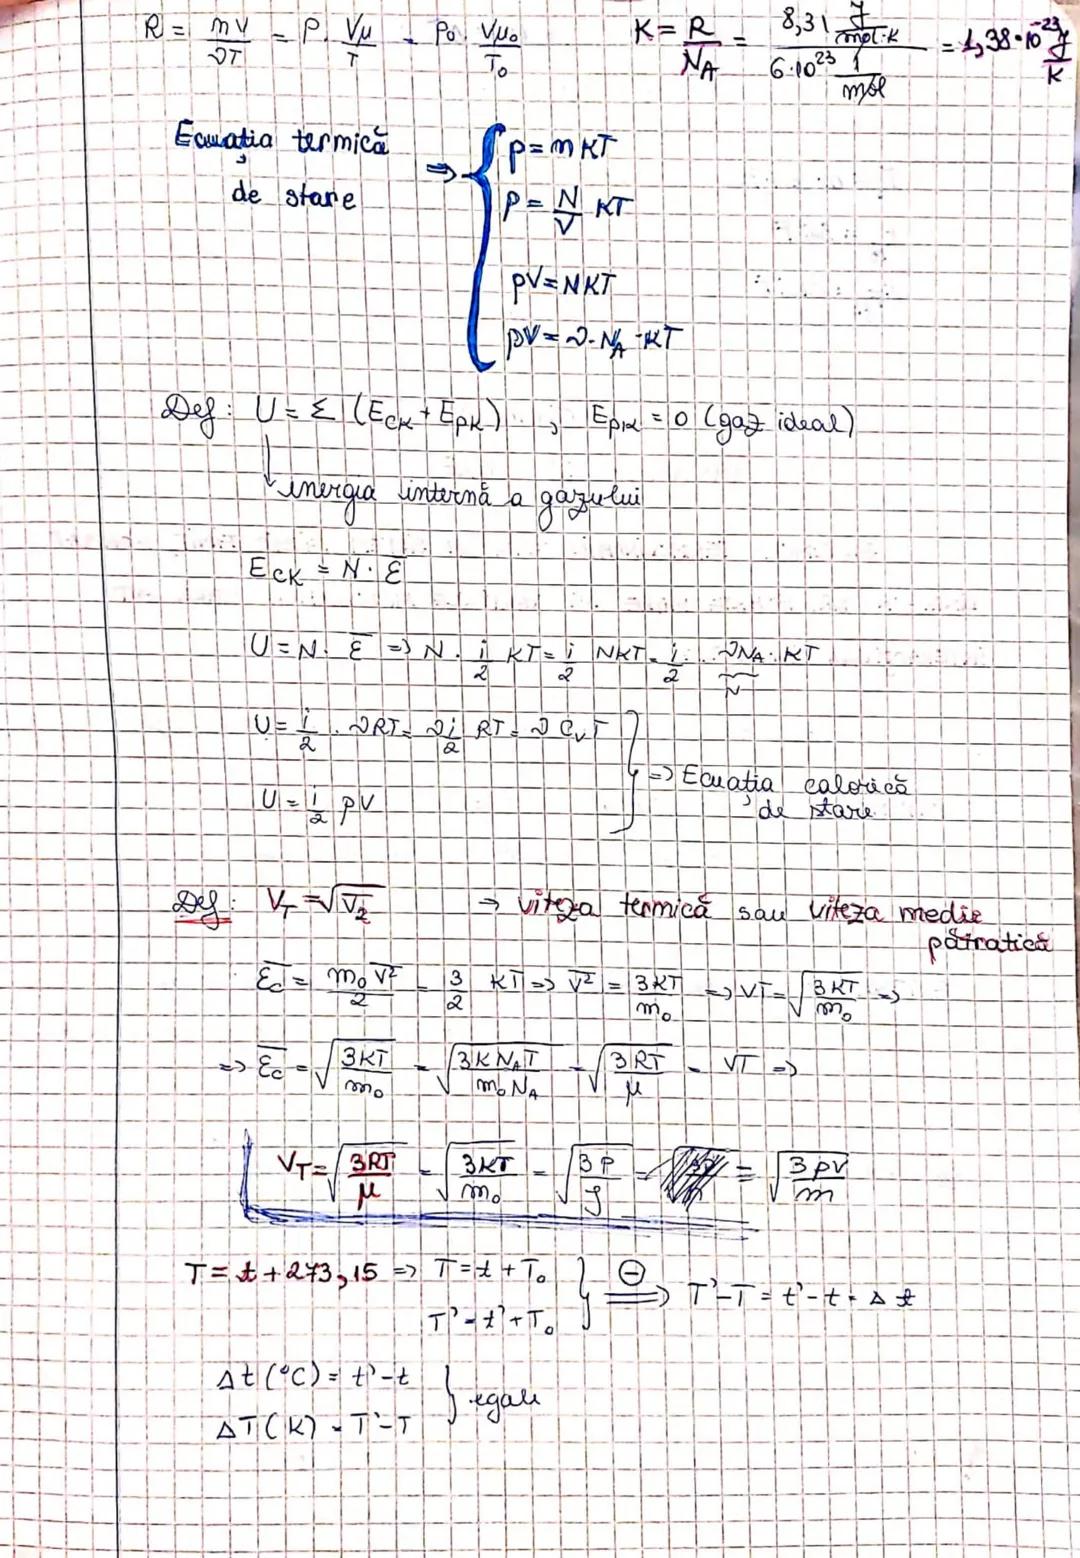 R = mV/νT = P · Vμ/T = P₀ · Vμ₀/T₀
K = R/N_A = 8,31 J/mol·K / 6·10²³ 1/mol = 1,38·10⁻²³ J/K
Ecuația termică de stare ⇒ { p = mKT
p = N/V KT
pV = NKT
pV = ν·N_A·KT
Def: U = Σ (E_CK + E_PK) , E_PK = 0 (gaz ideal)
↓ energia internă a gazului
E_CK = N · ε̅
U = N · ε̅ ⇒ N · i/2 KT = i/2 NKT = i/2 · νN_A · KT
N
U = i/2 · νRT = ν i/2 RT = ν C_V T
U = i/2 pV } ⇒ Ecuația calorică de stare
Def: V_T = √V̅₂ → viteza termică sau viteza medie
pătratică
ε̅_c = m₀V̅²/2 = 3/2 KT ⇒ V̅² = 3KT/m₀ ⇒ VT = √(3KT/m₀) ⇒
⇒ ε̅_c = √(3KT/m₀) = √(3KN_AT/m₀N_A) = √(3RT/μ) = VT ⇒
V_T = √(3RT/μ) = √(3KT/m₀) = √(3P/ρ) = √(3pV/m)
T = t + 273,15 ⇒ T = t + T₀
T' = t' + T₀ } ⊖⇒ T' - T = t' - t = Δt
Δt (°C) = t' - t
ΔT (K) = T' - T } egale